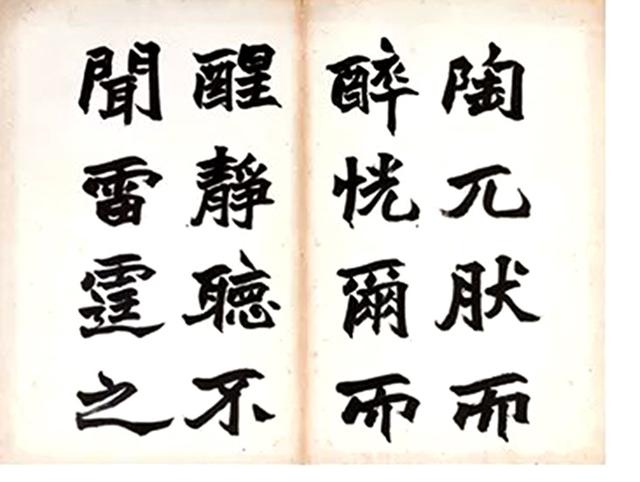 陶兀肰而
醉恍爾而
醒靜聽不
聞雷霆之